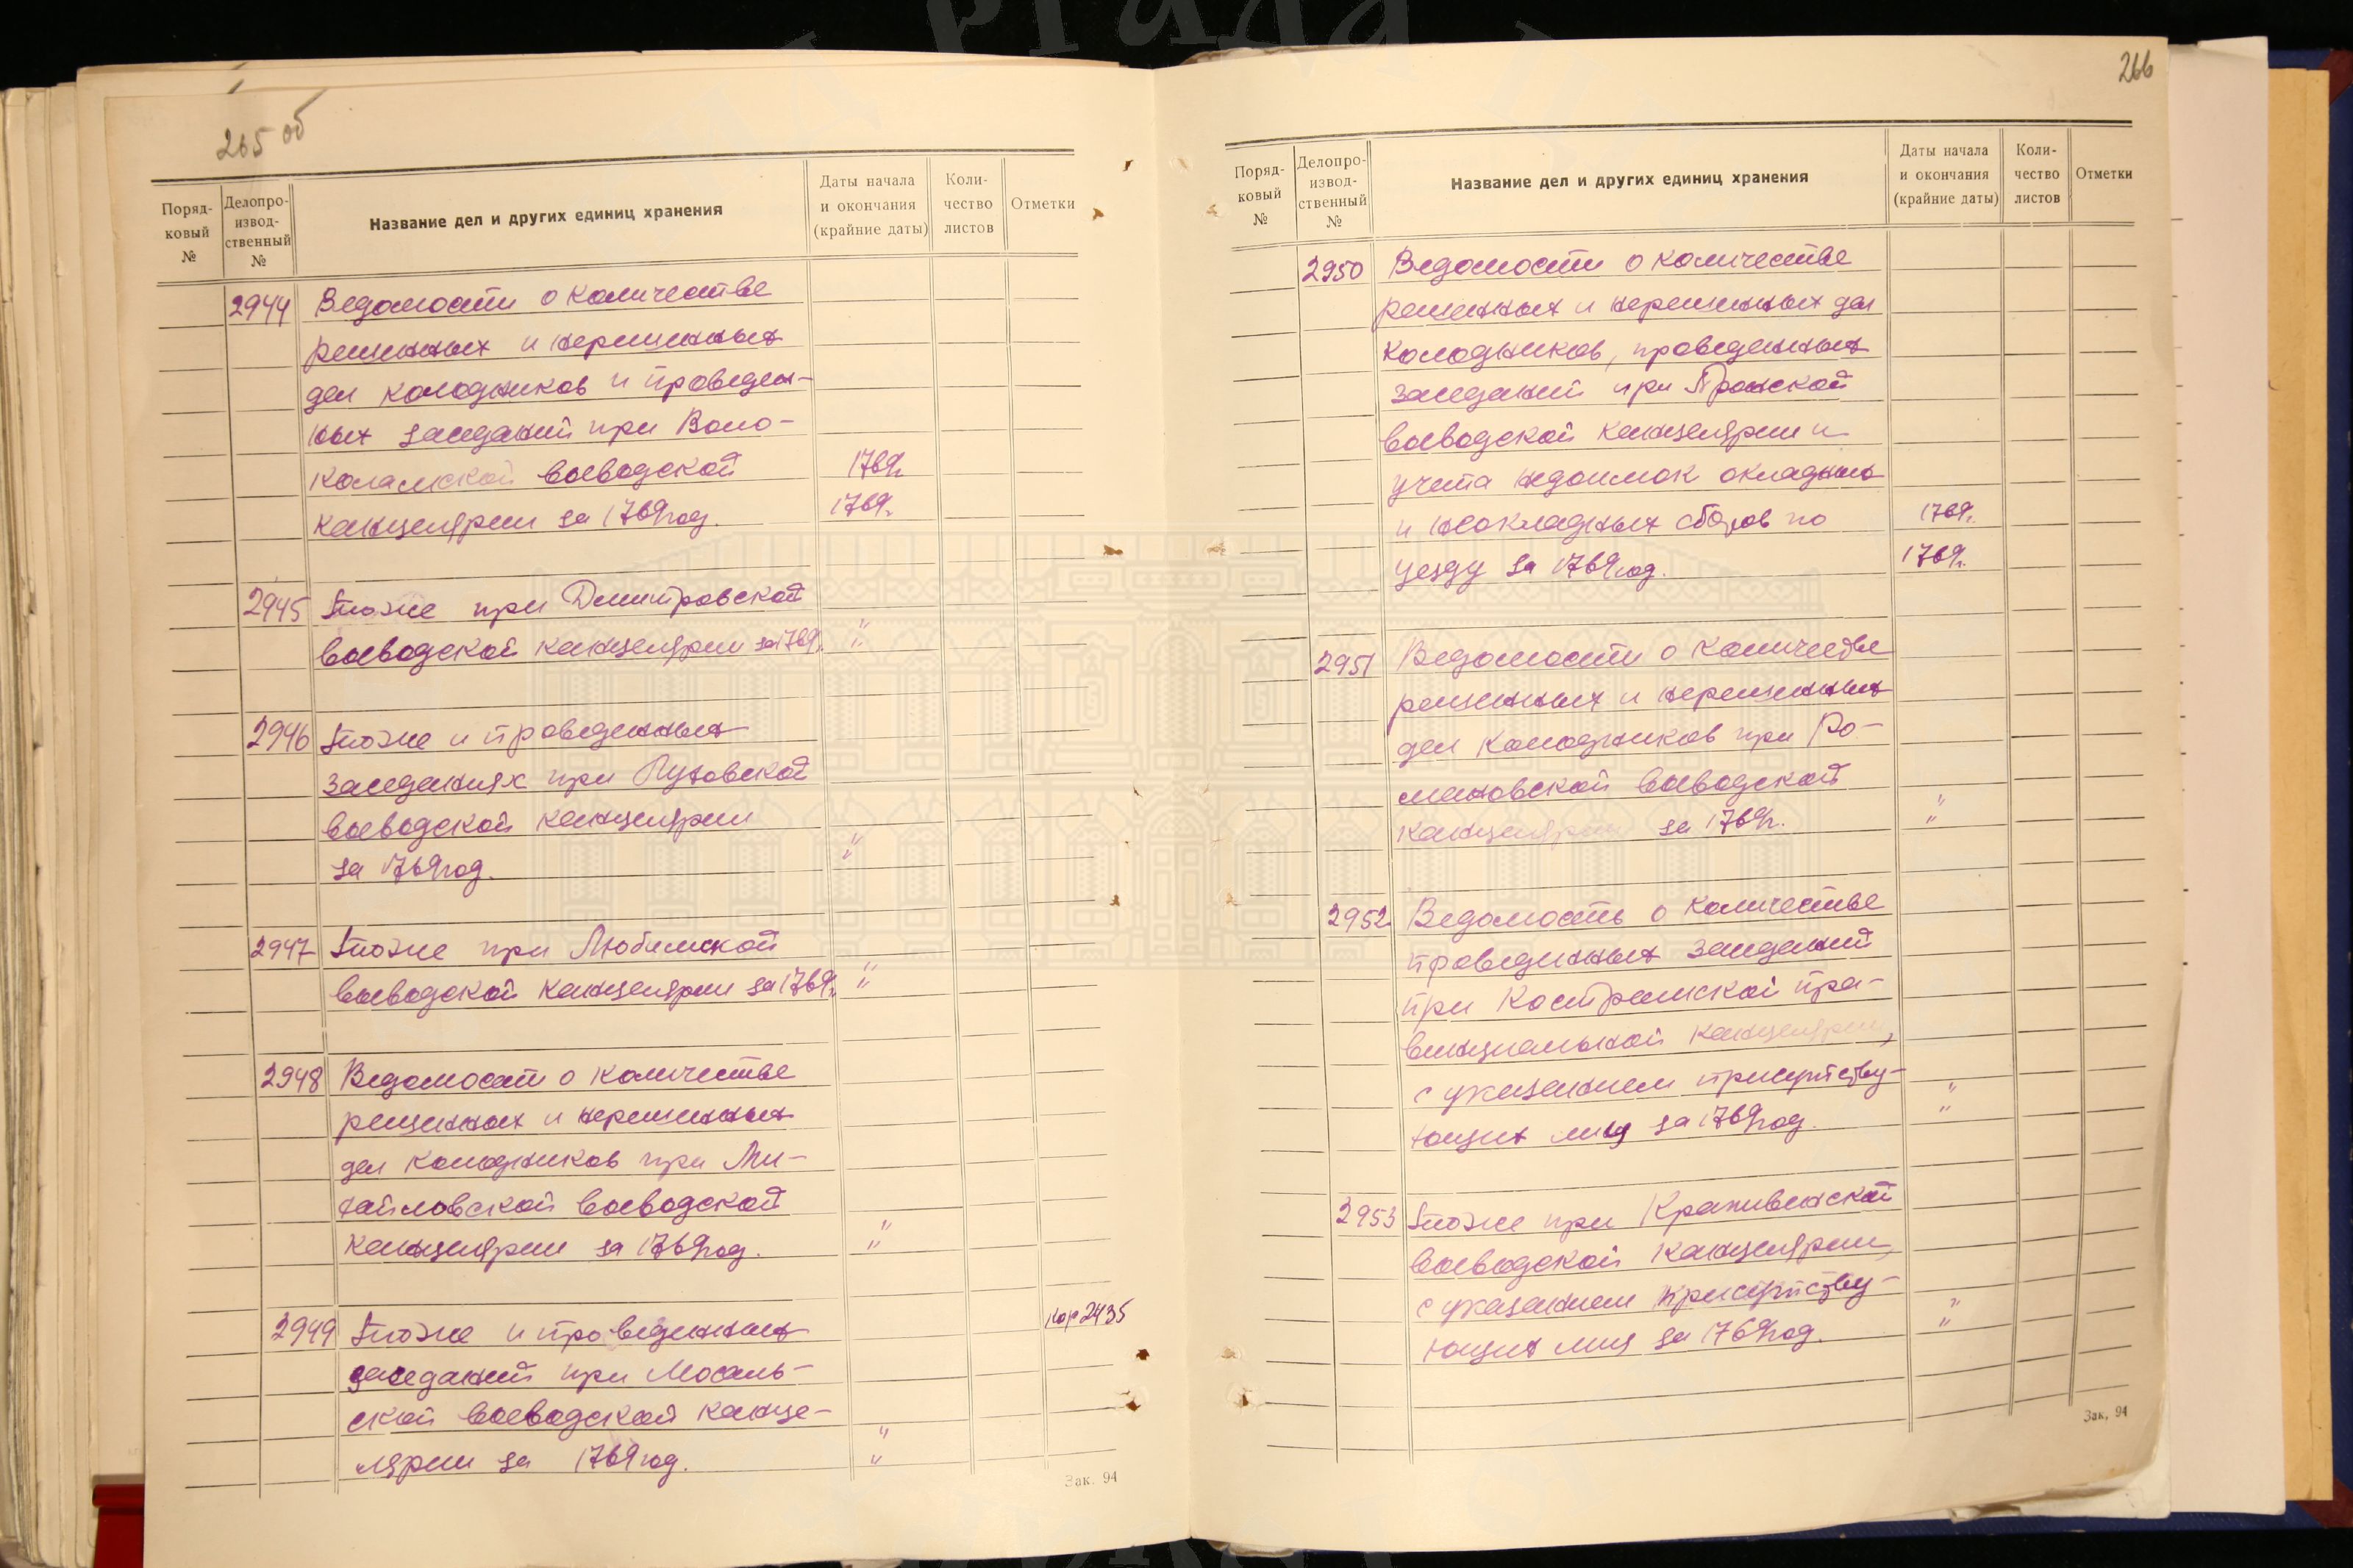 265 об
Поряд-
ковый
№
Делопро-
извод-
ственный
№
Название дел и других единиц хранения
Даты начала
и окончания
(крайние даты)
Коли-
чество
листов
Отметки
2944 Ведомости о количестве
решенных и нерешенных
дел колодников и проведен-
ных заседаний при Воло-
коламской воеводской 1769г.
канцелярии за 1769 год. 1769г.
2945 Тоже при Дмитровской
воеводской канцелярии за 1769г. "
2946 Тоже и проведенных
заседаниях при Рузовской
воеводской канцелярии
за 1769 год. "
2947 Тоже при Любимской
воеводской канцелярии за 1769г. "
2948 Ведомости о количестве
решенных и нерешенных
дел колодников при Ми-
хайловской воеводской
канцелярии за 1769 год. "
2949 Тоже и проведенных кор 2435
заседаний при Мосаль-
ской воеводской канце-
лярии за 1769 год. "
Зак. 94
266
Поряд-
ковый
№
Делопро-
извод-
ственный
№
Название дел и других единиц хранения
Даты начала
и окончания
(крайние даты)
Коли-
чество
листов
Отметки
2950 Ведомости о количестве
решенных и нерешенных дел
колодников, проведенных
заседаний при Пронской
воеводской канцелярии и
учета недоимок окладных
и неокладных сборов по 1769г.
уезду за 1769 год. 1769г.
2951 Ведомости о количестве
решенных и нерешенных
дел колодников при Ро-
мановской воеводской "
канцелярии за 1769г. "
2952 Ведомость о количестве
проведенных заседаний
при Костромской про-
винциальной канцелярии,
с указанием присутству- "
ющих лиц за 1769 год. "
2953 Тоже при Крапивенской
воеводской канцелярии,
с указанием присутству- "
ющих лиц за 1769 год. "
Зак. 94